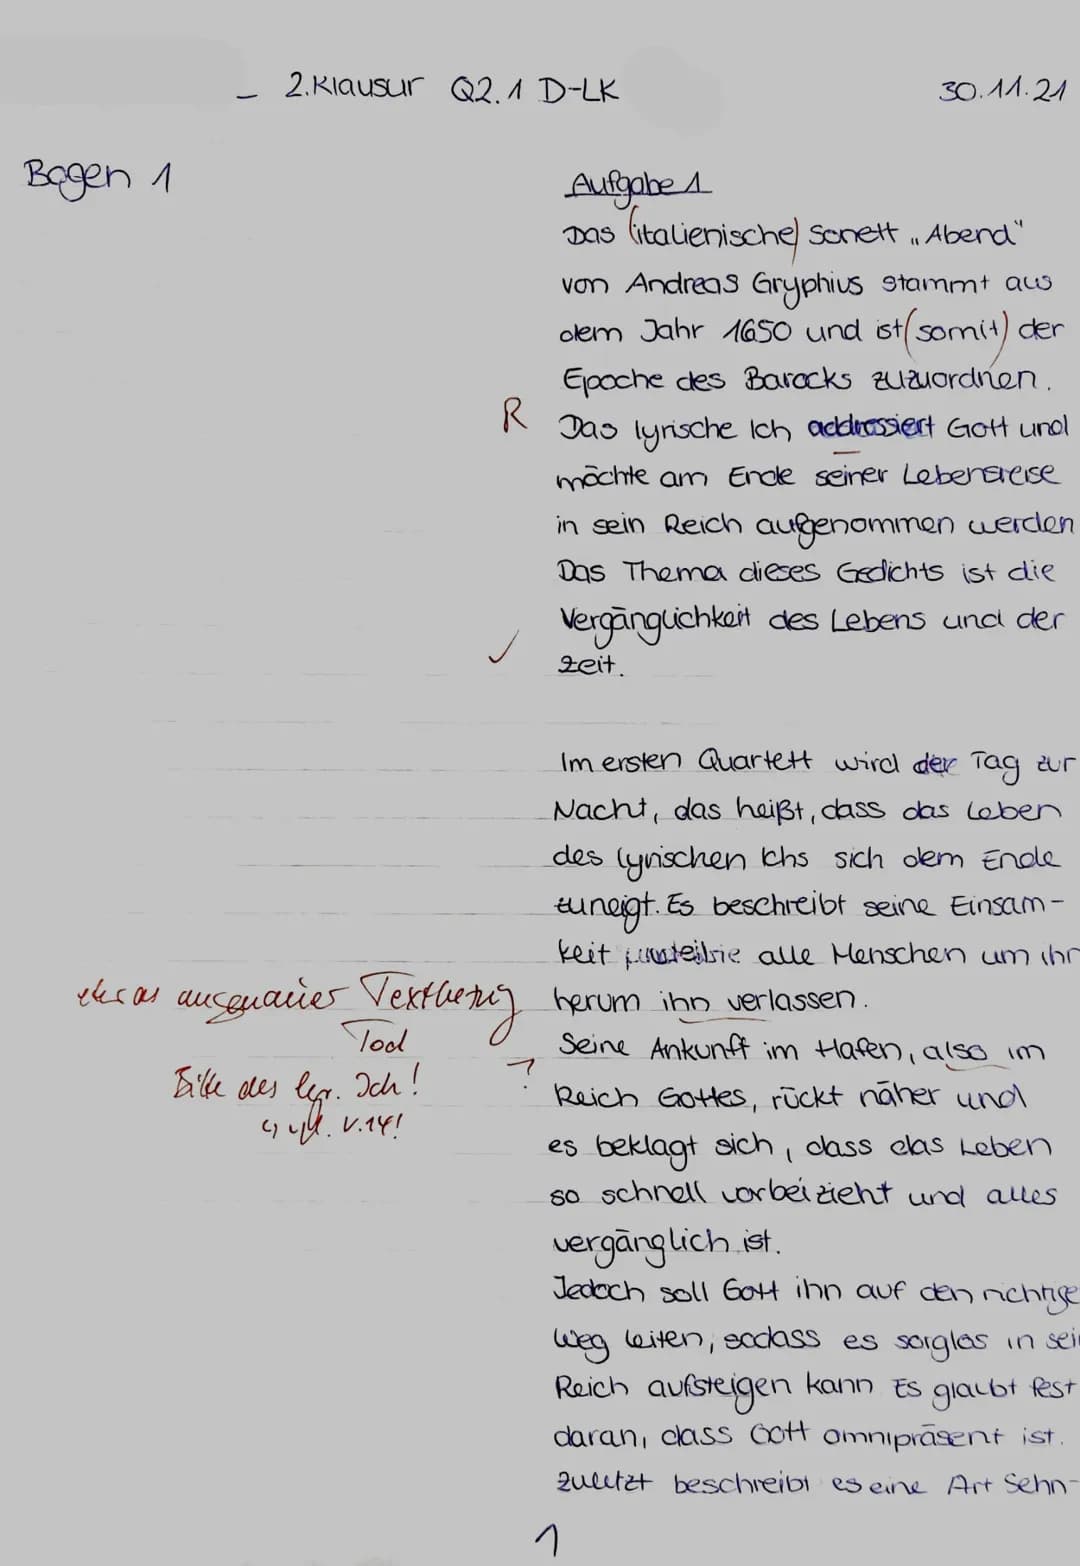 – 2. Klausur Q2.1 D-LK 30.11.21
Bogen 1
Aufgabe 1
Das (italienische) Sonett „Abend"
von Andreas Gryphius stammt aus
dem Jahr 1650 und ist (somit) der
Epoche des Barocks zuzuordnen.
R Das lyrische Ich addressiert Gott und
möchte am Ende seiner Lebensreise
in sein Reich aufgenommen werden
Das Thema dieses Gedichts ist die
Vergänglichkeit des Lebens und der
✓ Zeit.
Im ersten Quartett wird der Tag zur
Nacht, das heißt, dass das Leben
des lyrischen Ichs sich dem Ende
zuneigt. Es beschreibt seine Einsam-
keit alle Menschen um ihn
etwas ungenauer Textbezug herum ihn verlassen.
Tod
Seine Ankunft im Hafen, also im
Bitte des lyr. Ich! ? Reich Gottes, rückt näher und
↳ vgl. V.14!
es beklagt sich, dass das Leben
so schnell vorbeizieht und alles
vergänglich ist.
Jedoch soll Gott ihn auf den richtige
Weg leiten, sodass es sorglos in sei
Reich aufsteigen kann Es glaubt fest
daran, dass Gott omnipräsent ist.
Zuletzt beschreibt es eine Art Sehn-
1